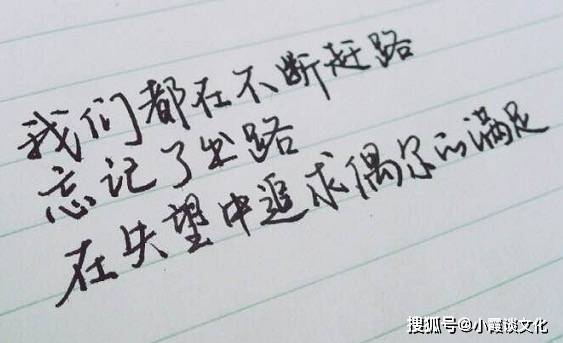 我们都在不断赶路
忘记了出路
在失望中追求偶尔的满足
搜狐号@小霞谈文化